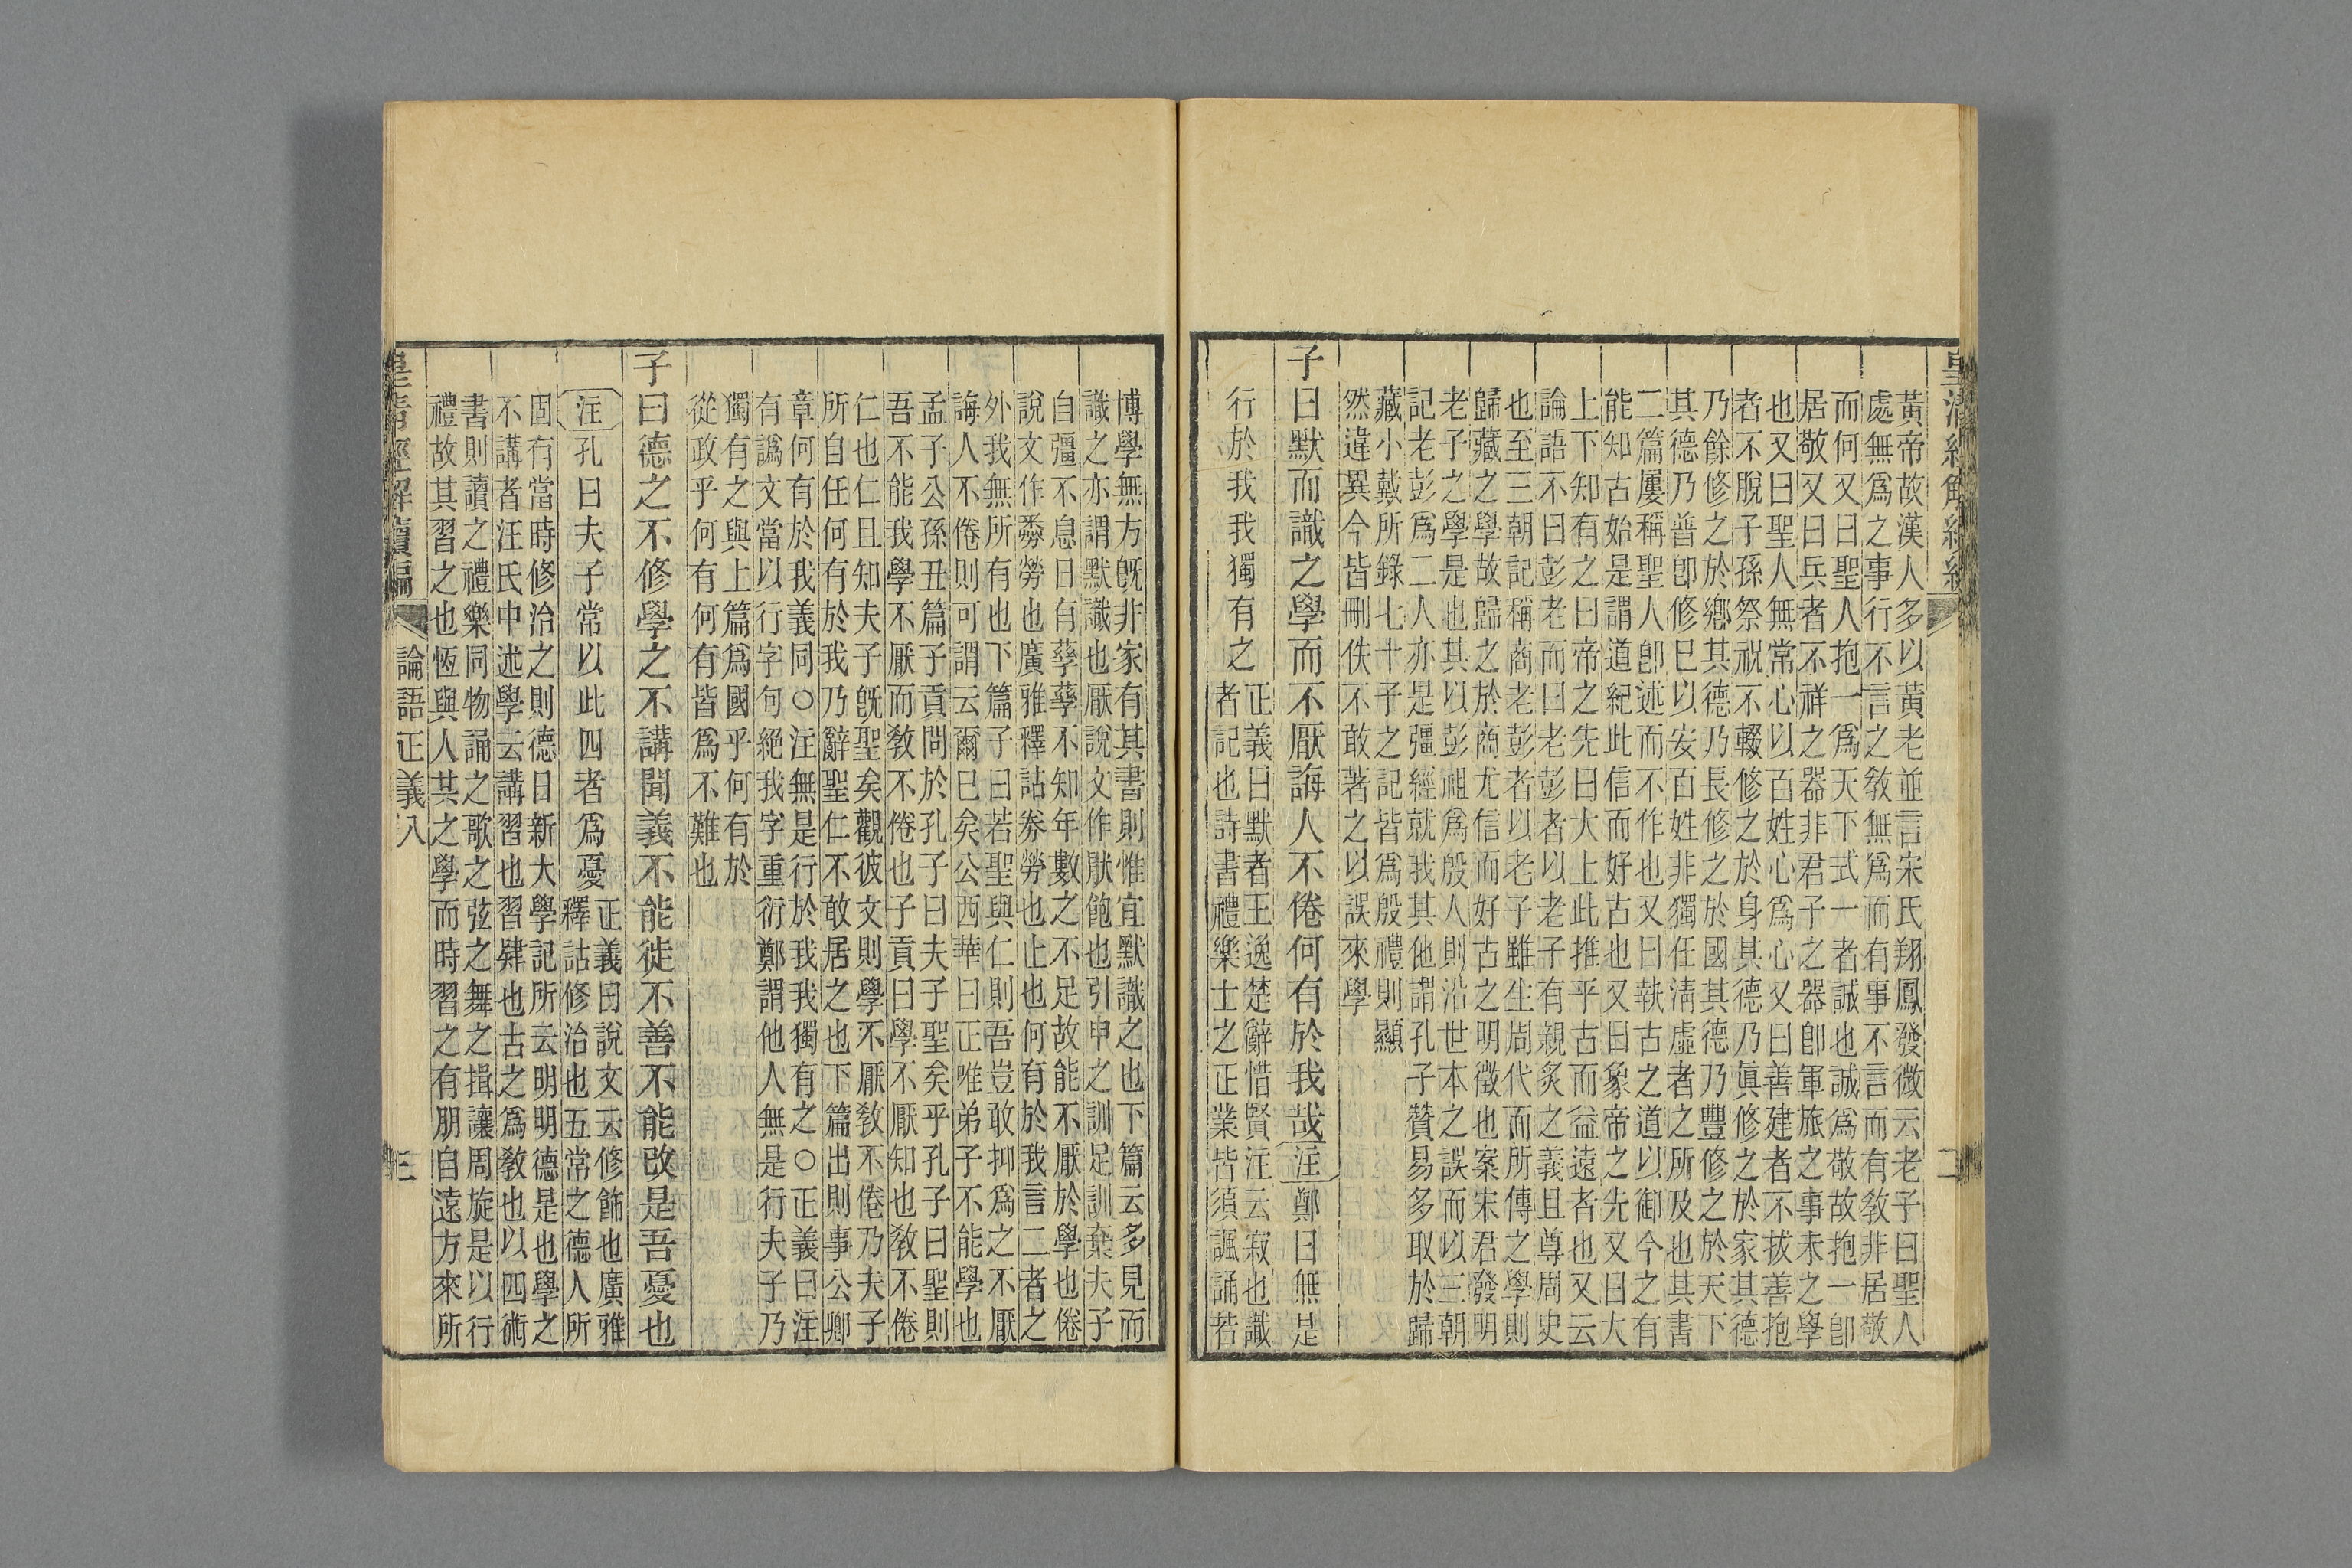 皇清經解續編
二
黃帝故漢人多以黃老並言宋氏翔鳳發微云老子曰聖人
處無爲之事行不言之敎無爲而有事不言而有敎非居敬
而何又曰聖人抱一爲天下式一者誠也誠爲敬故抱一卽
居敬又曰兵者不祥之器非君子之器卽軍旅之事未之學
也又曰聖人無常心以百姓心爲心又曰善建者不拔善抱
者不脫子孫祭祀不輟修之於身其德乃眞修之於家其德
乃餘修之於鄉其德乃長修之於國其德乃豐修之於天下
其德乃普卽修已以安百姓非獨任淸虛者之所及也其書
二篇屢稱聖人卽述而不作也又曰執古之道以御今之有
能知古始是謂道紀此信而好古也又曰象帝之先又曰大
上下知有之曰帝之先曰大上此推乎古而益遠者也又云
論語不曰彭老而曰老彭者以老子有親炙之義且尊周史
也至三朝記稱商老彭者以老子雖生周代而所傳之學則
歸藏之學故歸之於商尤信而好古之明徵也案宋君發明
老子之學是也其以彭祖爲殷人則沿世本之誤而以三朝
記老彭爲二人亦是彊經就我其他謂孔子贊易多取於歸
藏小戴所錄七十子之記皆爲殷禮則顯
然違異今皆刪佚不敢著之以誤來學
子曰默而識之學而不厭誨人不倦何有於我哉注鄭曰無是
行於我我獨有之
正義曰默者王逸楚辭惜賢注云寂也識
者記也詩書禮樂士之正業皆須諷誦若
博學無方旣非家有其書則惟宜默識之也下篇云多見而
識之亦謂默識也厭說文作猒飽也引申之訓足訓棄夫子
自彊不息日有孳孳不知年數之不足故能不厭於學也倦
說文作劵勞也廣雅釋詁劵勞也止也何有於我言二者之
外我無所有也下篇子曰若聖與仁則吾豈敢抑爲之不厭
誨人不倦則可謂云爾已矣公西華曰正唯弟子不能學也
孟子公孫丑篇子貢問於孔子曰夫子聖矣乎孔子曰聖則
吾不能我學不厭而敎不倦也子貢曰學不厭知也敎不倦
仁也仁且知夫子旣聖矣觀彼文則學不厭敎不倦乃夫子
所自任何有於我乃辭聖仁不敢居之也下篇出則事公卿
章何有於我義同○注無是行於我我獨有之○正義曰注
有譌文當以行字句絕我字重衍鄭謂他人無是行夫子乃
獨有之與上篇爲國乎何有於
從政乎何有何有皆爲不難也
子曰德之不修學之不講聞義不能徙不善不能改是吾憂也
注孔曰夫子常以此四者爲憂
正義曰說文云修飾也廣雅
釋詁修治也五常之德人所
固有當時修治之則德日新大學記所云明明德是也學之
不講者汪氏中述學云講習也習肄也古之爲敎也以四術
書則讀之禮樂同物誦之歌之弦之舞之揖讓周旋是以行
禮故其習之也恆與人其之學而時習之有朋自遠方來所
皇清經解續編
論語正義八
三